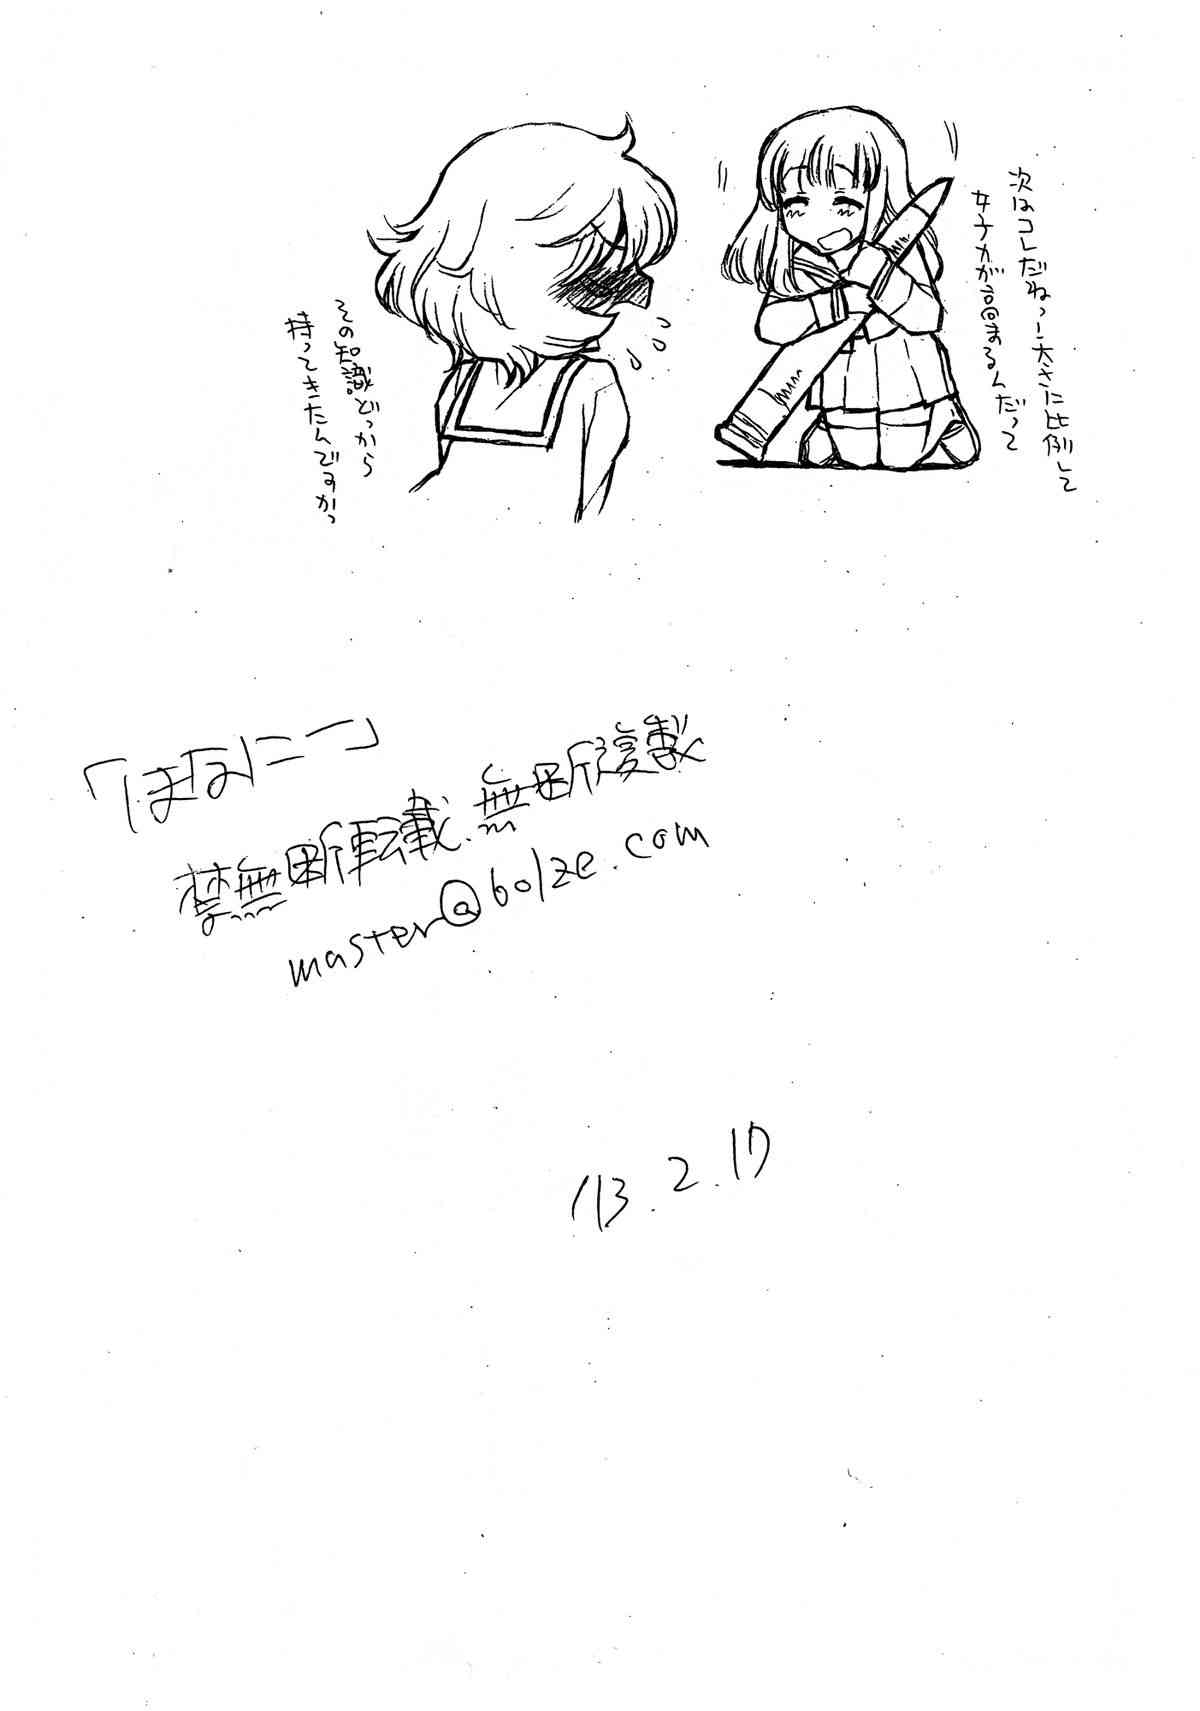 次はコレだねっ!太さに比例して
女子力が高まるんだって
その知識どっから
持ってきたんですかっ
「はなにー」
禁無断転載.無断複製
master@bolze.com
'13.2.17